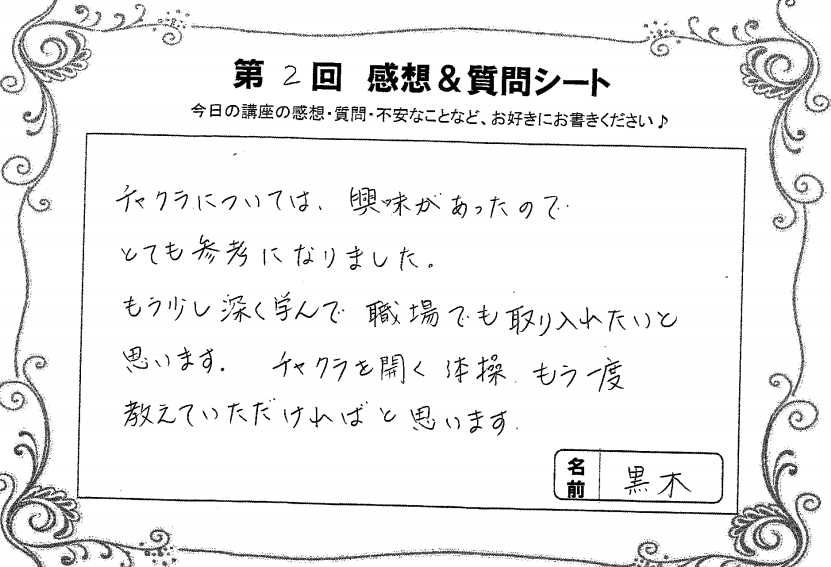 第2回 感想&質問シート
今日の講座の感想・質問・不安なことなど、お好きにお書きください♪
チャクラについては、興味があったので
とても参考になりました。
もう少し深く学んで職場でも取り入れたいと
思います。チャクラを開く体操、もう一度
教えていただければと思います。
名前 黒木